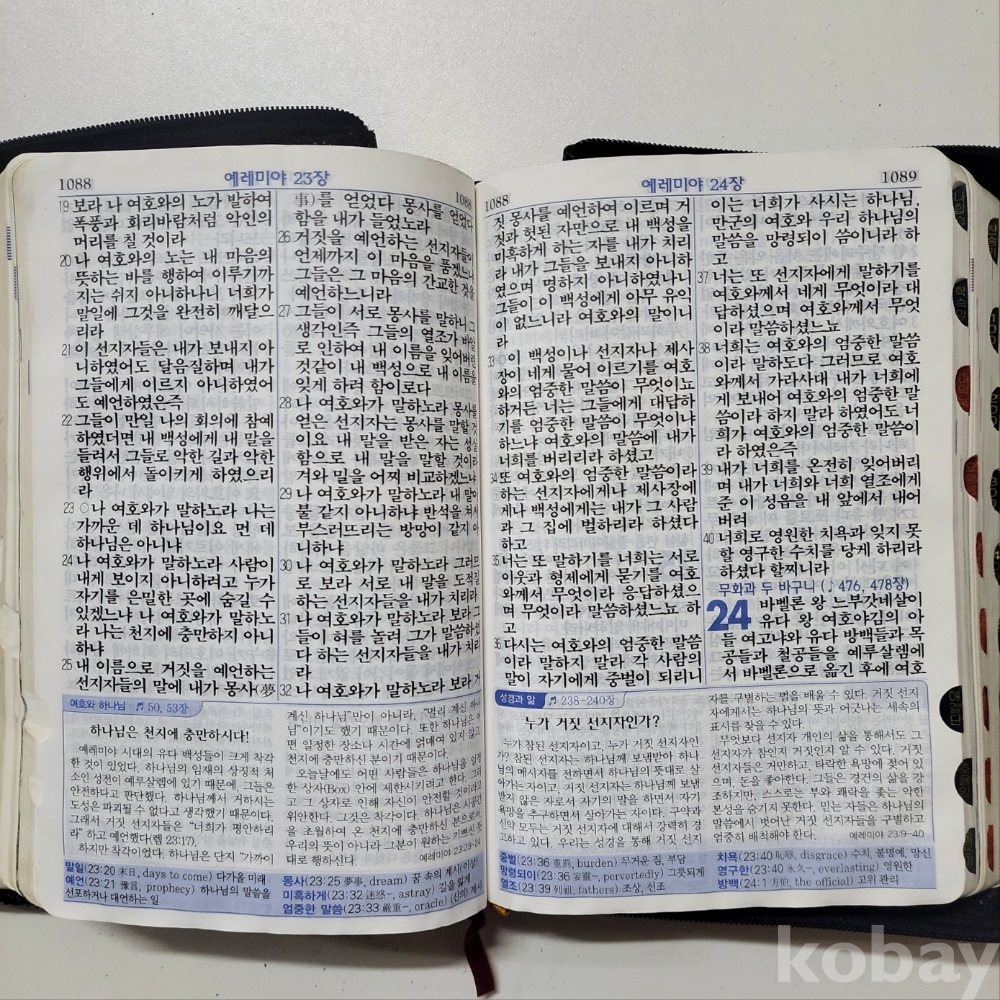 1088
예레미야 23장
1088
19 보라 나 여호와의 노가 발하여
폭풍과 회리바람처럼 악인의
머리를 칠 것이라
20 나 여호와의 노는 내 마음의
뜻하는 바를 행하여 이루기까
지는 쉬지 아니하나니 너희가
말일에 그것을 완전히 깨달으
리라
21 이 선지자들은 내가 보내지 아
니하였어도 달음질하며 내가
그들에게 이르지 아니하였어
도 예언하였은즉
22 그들이 만일 나의 회의에 참예
하였더면 내 백성에게 내 말을
들려서 그들로 악한 길과 악한
행위에서 돌이키게 하였으리
라
23 ○나 여호와가 말하노라 나는
가까운 데 하나님이요 먼 데
하나님은 아니냐
24 나 여호와가 말하노라 사람이
내게 보이지 아니하려고 누가
자기를 은밀한 곳에 숨길 수
있겠느냐 나 여호와가 말하노
라 나는 천지에 충만하지 아니
하냐
25 내 이름으로 거짓을 예언하는
선지자들의 말에 내가 몽사(夢
事)를 얻었다 몽사를 얻었다
함을 내가 들었노라
26 거짓을 예언하는 선지자들이
언제까지 이 마음을 품겠느냐
그들은 그 마음의 간교한 것을
예언하느니라
27 그들이 서로 몽사를 말하니 그
생각인즉 그들의 열조가 바알
로 인하여 내 이름을 잊어버린
것같이 내 백성으로 내 이름을
잊게 하려 함이로다
28 나 여호와가 말하노라 몽사를
얻은 선지자는 몽사를 말할 것
이요 내 말을 받은 자는 성실
함으로 내 말을 말할 것이라
겨와 밀을 어찌 비교하겠느냐
29 나 여호와가 말하노라 내 말이
불 같지 아니하냐 반석을 쳐서
부스러뜨리는 방망이 같지 아
니하냐
30 나 여호와가 말하노라 그러므
로 보라 서로 내 말을 도적질
하는 선지자들을 내가 치리라
31 나 여호와가 말하노라 보라 그
들이 혀를 놀려 그가 말씀하셨
다 하는 선지자들을 내가 치리
라
32 나 여호와가 말하노라 보라 거
여호와 하나님 ♬ 50, 53장
하나님은 천지에 충만하시다!
예레미야 시대의 유다 백성들이 크게 착각
한 것이 있었다. 하나님의 임재의 상징적 처
소인 성전이 예루살렘에 있기 때문에, 그들은
안전하다고 판단했다. 하나님께서 거하시는
도성은 파괴될 수 없다고 생각했기 때문이다.
그래서 거짓 선지자들은 “너희가 평안하리
라” 하고 예언했다(렘 23:17).
하지만 착각이었다. 하나님은 단지 “가까이
계신 하나님”만이 아니라, “멀리 계신 하나
님”이기도 했기 때문이다. 또한 하나님은 어
떤 일정한 장소나 시간에 얽매여 있지 않고
천지에 충만하신 분이기 때문이다.
오늘날에도 어떤 사람들은 하나님을 일정
한 상자(Box) 안에 제한시키려고 한다. 그리
고 그 상자로 인해 자신이 안전할 것이라고
위안한다. 그것은 착각이다. 하나님은 시공간
을 초월하여 온 천지에 충만하신 분으로서,
우리의 뜻이 아니라 그분의 원하는 기쁘신 뜻
대로 행하신다. 예레미야 23:23-24
말일(23:20 末日, days to come) 다가올 미래
예언(23:21 豫言, prophecy) 하나님의 말씀을
선포하거나 대언하는 일
몽사(23:25 夢事, dream) 꿈 속의 계시(이상)
미혹하게(23:32 迷惑-, astray) 길을 잃게
엄중한 말씀(23:33 嚴重-, oracle) (신의) 계시
1088
예레미야 24장
1089
짓 몽사를 예언하여 이르며 거
짓과 헛된 자만으로 내 백성을
미혹하게 하는 자를 내가 치리
라 내가 그들을 보내지 아니하
였으며 명하지 아니하였나니
그들이 이 백성에게 아무 유익
이 없느니라 여호와의 말이니
라
33 ○이 백성이나 선지자나 제사
장이 네게 물어 이르기를 여호
와의 엄중한 말씀이 무엇이뇨
하거든 너는 그들에게 대답하
기를 엄중한 말씀이 무엇이냐
하느냐 여호와의 말씀에 내가
너희를 버리리라 하셨고
34 또 여호와의 엄중한 말씀이라
하는 선지자에게나 제사장에
게나 백성에게는 내가 그 사람
과 그 집에 벌하리라 하셨다
하고
35 너는 또 말하기를 너희는 서로
이웃과 형제에게 묻기를 여호
와께서 무엇이라 응답하셨으
며 무엇이라 말씀하셨느뇨 하
고
36 다시는 여호와의 엄중한 말씀
이라 말하지 말라 각 사람의
말이 자기에게 중벌이 되리니
이는 너희가 사시는 하나님,
만군의 여호와 우리 하나님의
말씀을 망령되이 씀이니라 하
고
37 너는 또 선지자에게 말하기를
여호와께서 네게 무엇이라 대
답하셨으며 여호와께서 무엇
이라 말씀하셨느뇨
38 너희는 여호와의 엄중한 말씀
이라 말하도다 그러므로 여호
와께서 가라사대 내가 너희에
게 보내어 여호와의 엄중한 말
씀이라 하지 말라 하였어도 너
희가 여호와의 엄중한 말씀이
라 하였은즉
39 내가 너희를 온전히 잊어버리
며 내가 너희와 너희 열조에게
준 이 성읍을 내 앞에서 내어
버려
40 너희로 영원한 치욕과 잊지 못
할 영구한 수치를 당케 하리라
하셨다 할찌니라
무화과 두 바구니 (♩476, 478장)
24 바벨론 왕 느부갓네살이
유다 왕 여호야김의 아
들 여고냐와 유다 방백들과 목
공들과 철공들을 예루살렘에
서 바벨론으로 옮긴 후에 여호
성경과 삶 ♬ 238-240장
누가 거짓 선지자인가?
누가 참된 선지자이고, 누가 거짓 선지자인
가? 참된 선지자는 하나님께 보냄받아 하나
님의 메시지를 전하면서 하나님의 뜻대로 살
아가는 자이고, 거짓 선지자는 하나님께 보냄
받지 않은 자로서 자기의 말을 하면서 자기
욕망을 추구하면서 살아가는 자이다. 구약과
신약 모두는 거짓 선지자에 대해서 강력히 경
고하고 있다. 우리는 성경을 통해 거짓 선지
자를 구별하는 법을 배울 수 있다. 거짓 선지
자에게서는 하나님의 뜻과 어긋나는 세속의
표시를 찾을 수 있다.
무엇보다 선지자 개인의 삶을 통해서도 그
선지자가 참인지 거짓인지 알 수 있다. 거짓
선지자들은 거만하고, 타락한 욕망에 젖어 있
으며, 돈을 좋아한다. 그들은 경건의 삶을 강
조하지만, 스스로는 부와 쾌락을 좇는 악한
본성을 숨기지 못한다. 믿는 자들은 하나님의
말씀에서 벗어난 거짓 선지자들을 구별하고
엄중히 배척해야 한다. 예레미야 23:9-40
중벌(23:36 重罰, burden) 무거운 짐, 부담
망령되이(23:36 妄靈-, pervertedly) 그릇되게
열조(23:39 列祖, fathers) 조상, 선조
치욕(23:40 恥辱, disgrace) 수치, 불명예, 망신
영구한(23:40 永久-, everlasting) 영원한
방백(24:1 方伯, the official) 고위 관리
kobay